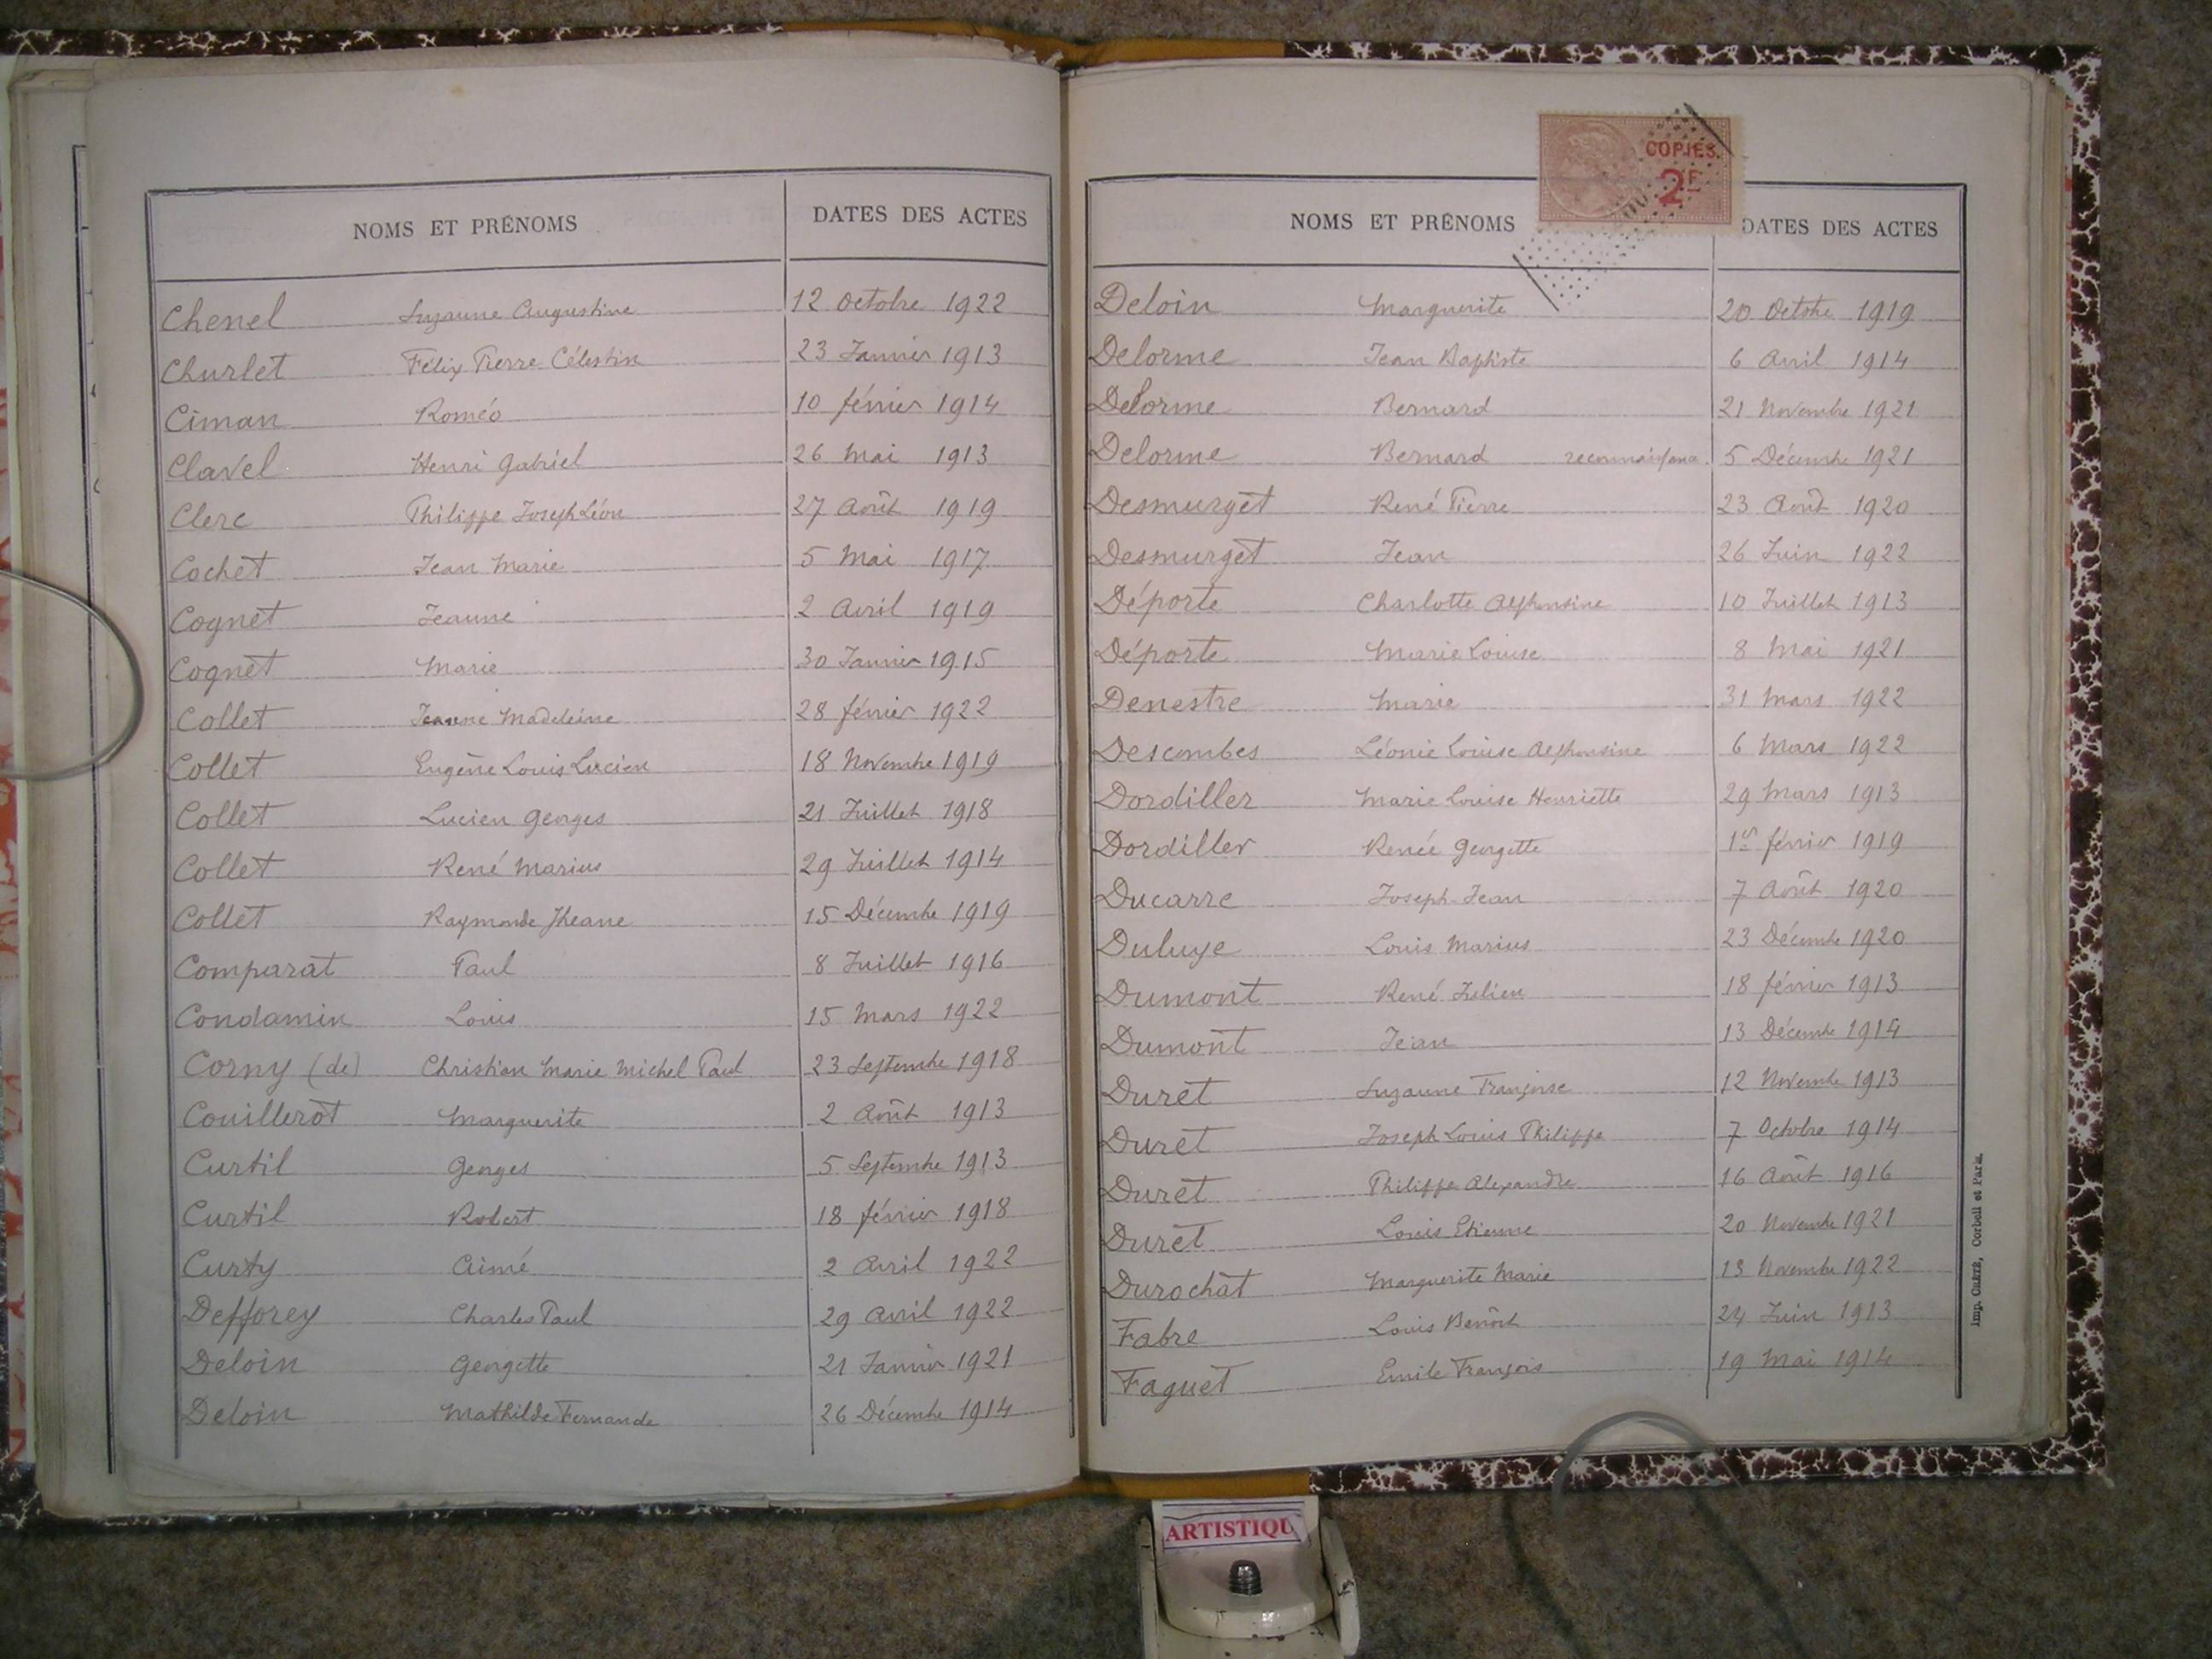 NOMS ET PRÉNOMS DATES DES ACTES
Chenel Suzanne Augustine 12 Octobre 1922
Churlet Félix Pierre Célestin 23 Janvier 1913
Ciman Roméo 10 février 1914
Clavel Henri Gabriel 26 Mai 1913
Clerc Philippe Joseph Léon 27 Août 1919
Cochet Jean Marie 5 Mai 1917
Cognet Jeanne 2 Avril 1919
Cognet Marie 30 Janvier 1915
Collet Jeanne Madeleine 28 février 1922
Collet Eugène Louis Lucien 18 Novembre 1919
Collet Lucien Georges 21 Juillet 1918
Collet René Marius 29 Juillet 1914
Collet Raymonde Jheane 15 Décembre 1919
Comparat Paul 8 Juillet 1916
Condamin Louis 15 Mars 1922
Corny (de) Christian Marie Michel Paul 23 Septembre 1918
Couillerot Marguerite 2 Août 1913
Curtil Georges 5 Septembre 1913
Curtil Robert 18 février 1918
Curty Aimé 2 Avril 1922
Defforey Charles Paul 29 Avril 1922
Deloin Georgette 21 Janvier 1921
Deloin Mathilde Fernande 26 Décembre 1914
COPIES.
2F
NOMS ET PRÉNOMS DATES DES ACTES
Deloin Marguerite 20 Octobre 1919
Delorme Jean Baptiste 6 Avril 1914
Delorme Bernard 21 Novembre 1921
Delorme Bernard reconnaissance 5 Décembre 1921
Desmurget René Pierre 23 Août 1920
Desmurget Jean 26 Juin 1922
Déporte Charlotte Alphonsine 10 Juillet 1913
Déporte Marie Louise 8 Mai 1921
Denestre Marie 31 Mars 1922
Descombes Léonie Louise Alphonsine 6 Mars 1922
Dordiller Marie Louise Henriette 29 Mars 1913
Dordiller Renée Georgette 1er février 1919
Ducarre Joseph Jean 7 Août 1920
Duluye Louis Marius 23 Décembre 1920
Dumont René Julien 18 février 1913
Dumont Jean 13 Décembre 1914
Duret Suzanne Françoise 12 Novembre 1913
Duret Joseph Louis Philippe 7 Octobre 1914
Duret Philippe Alexandre 16 Août 1916
Duret Louis Etienne 20 Novembre 1921
Durochat Marguerite Marie 13 Novembre 1922
Fabre Louis Benoît 24 Juin 1913
Faguet Emile François 19 Mai 1914
Imp. CRÉTÉ, Corbeil et Paris.
ARTISTIQU